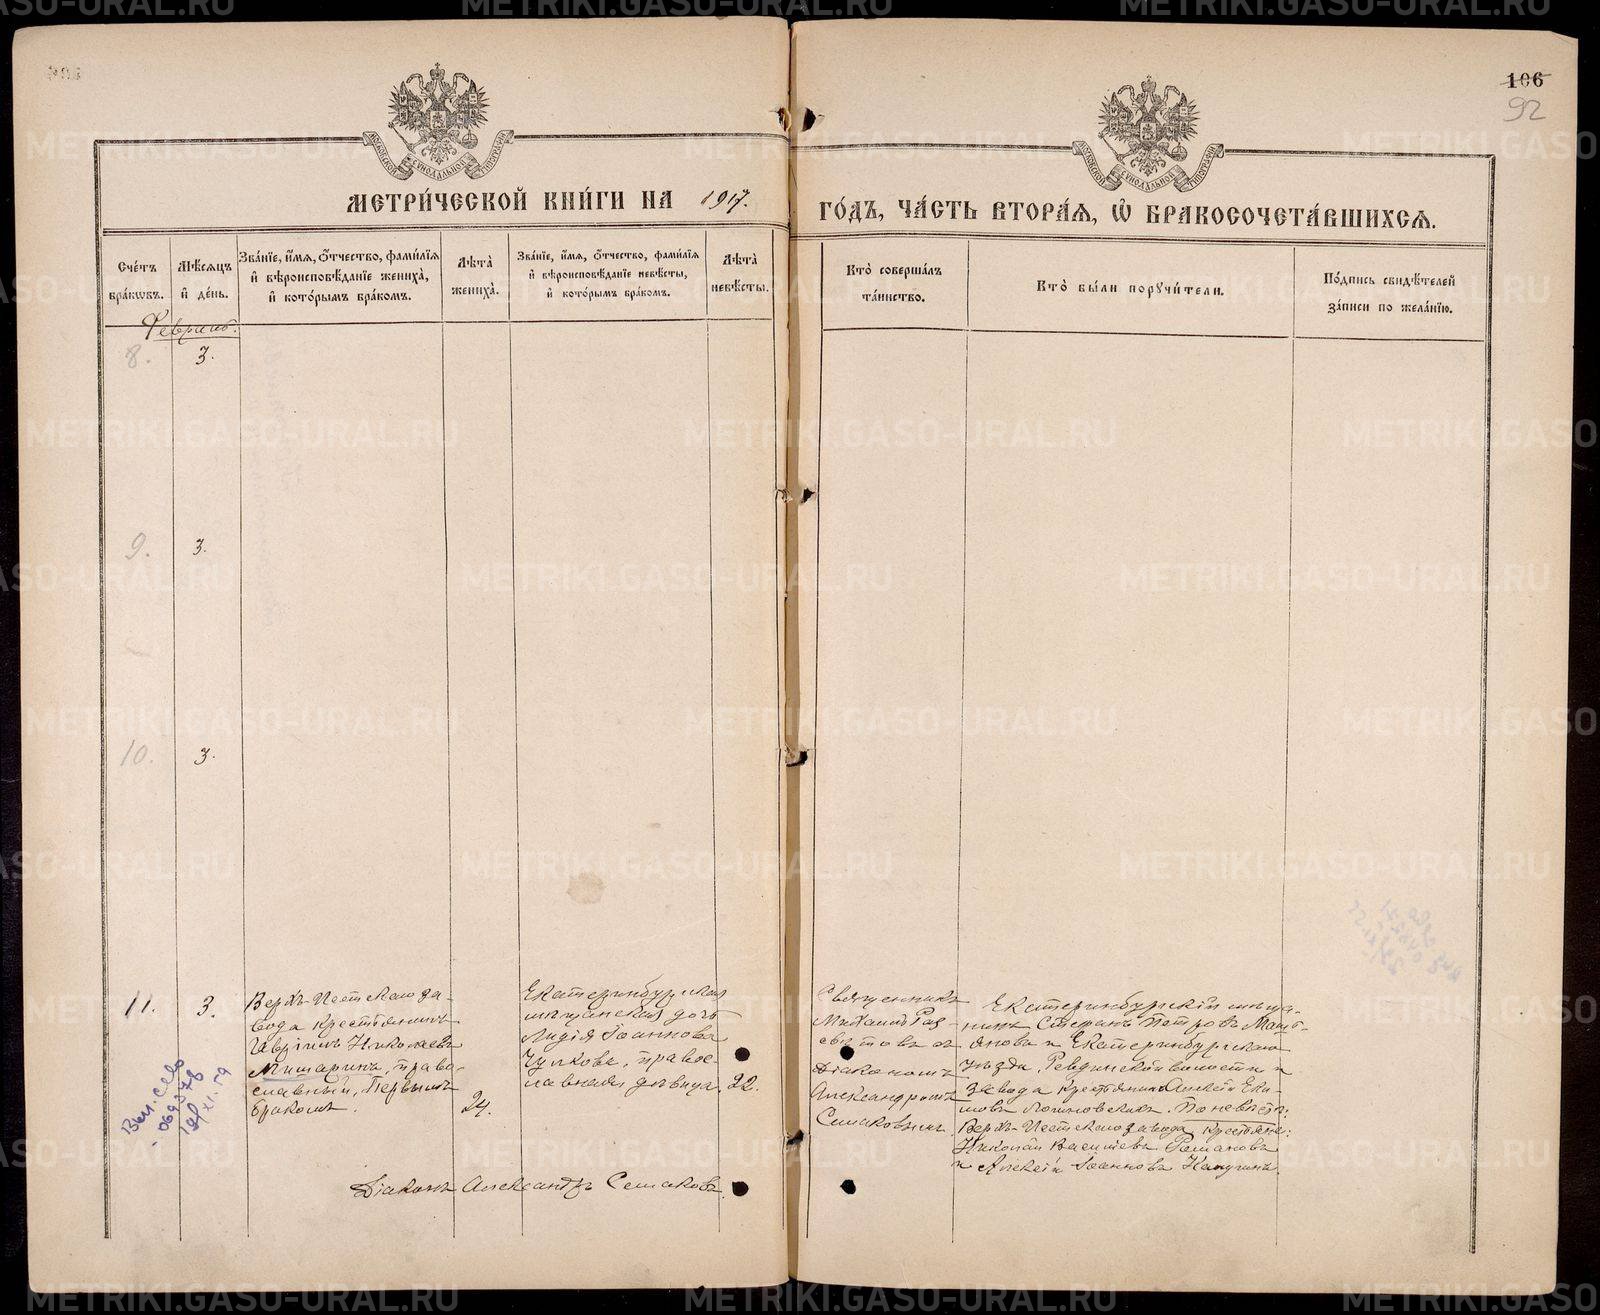 106
92
МЕТРИ́ЧЕСКОЙ КНИ́ГИ НА 1917.
ГО́ДЪ, ЧА́СТЬ ВТОРА́Ѧ, Ѡ҆ БРАКОСОЧЕТА́ВШИХСѦ.
Сче́тъ бра́кѡвъ.
Мѣ́сѧцъ и҆ де́нь.
Зва́нїе, и҆́мѧ, ѻ҆́тчество, фами́лїѧ и҆ вѣроисповѣ́данїе жениха̀, и҆ кото́рымъ бра́комъ.
Лѣ́та жениха̀.
Зва́нїе, и҆́мѧ, ѻ҆́тчество, фами́лїѧ и҆ вѣроисповѣ́данїе невѣ́сты, и҆ кото́рымъ бра́комъ.
Лѣ́та невѣ́сты.
Кто̀ соверша́лъ та́инство.
Кто̀ бы́ли порꙋчи́тели.
По́дпись свидѣ́телей за́писи по жела́нїю.
Февраль.
8.
3.
9.
3.
10.
3.
11.
3.
Верхъ-Исетскаго за-
вода крестьянинъ
Гавріилъ Николаевъ
Мишаринъ, право-
славный, Первымъ
бракомъ.
24.
Екатеринбургская
мѣщанская дочь
Лидія Іоаннова
Чулкова, правос-
лавная дѣвица.
22.
Священникъ
Михаилъ
съ
Діакономъ
Александромъ
Семаковымъ
Екатеринбургскій мѣща-
нинъ Стефанъ Петровъ
и Екатеринбургскаго
уѣзда, Ревдинской волости и
завода крестьянинъ Алексѣй Еки-
мовъ Логиновскихъ. По невѣстѣ:
Верхъ-Исетскаго завода крестьяне:
Николай Васильевъ Романовъ
и Алексѣй Іоанновъ
Діаконъ Александръ Семаковъ.
METRIKI.GASO-URAL.RU